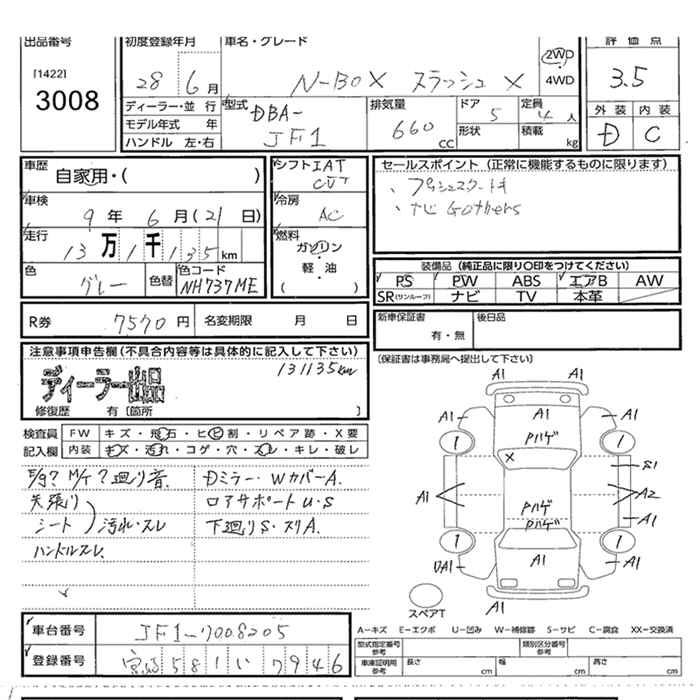 出品番号
[1422]
3008
初度登録年月
28 6月
車名・グレード
N-BOX スラッシュ X
2WD
4WD
評価点
3.5
外装 内装
D C
ディーラー・並行
モデル年式 年
ハンドル 左・右
型式
DBA-
JF1
排気量
660
cc
ドア
5
形状
定員
4人
積載 kg
車歴
自家用・( )
車検
9年 6月(21日)
走行
13万1千135km
色
グレー
色替
色コード
NH737ME
シフト IAT
CVT
冷房
AC
燃料
ガソリン
軽・油
( )
セールスポイント(正常に機能するものに限ります)
、プッシュスタート
、ナビ Gathers
装備品(純正品に限り○印をつけてください)
PS PW ABS エアB AW
SR(サンルーフ) ナビ TV 本革
R券 7570円
名変期限 月 日
新車保証書
有・無
後日品
(保証書は事務局へ提出して下さい)
注意事項申告欄(不具合内容等は具体的に記入して下さい)
131135km
ディーラー出品
修復歴 有〔箇所 〕
検査員
記入欄
FW キズ・飛石・ヒビ割・リペア跡・X要
内装 キズ・汚れ・コゲ・穴・スレ・キレ・破レ
E/g? M/T? 廻り音.
天張り
シート 汚れ・スレ
ハンドルスレ.
Dミラー・WカバーA.
ロアサポートU・S
下廻りS・スリA.
A1 A1
A1 A1 A1
Pハゲ
1 1
×
S1
A1 A2
Pハゲ
Pハゲ
A1
1 1
UA1 A1 A1
A1
スペアT
A-キズ E-エクボ U-凹み W-補修跡 S-サビ C-腐食 XX-交換済
車台番号 JF1-7008205
登録番号 宮崎 581 い 7946
型式指定番号
参考
類別区分番号
参考
車庫証明用
参考
長さ cm
幅 cm
高さ cm